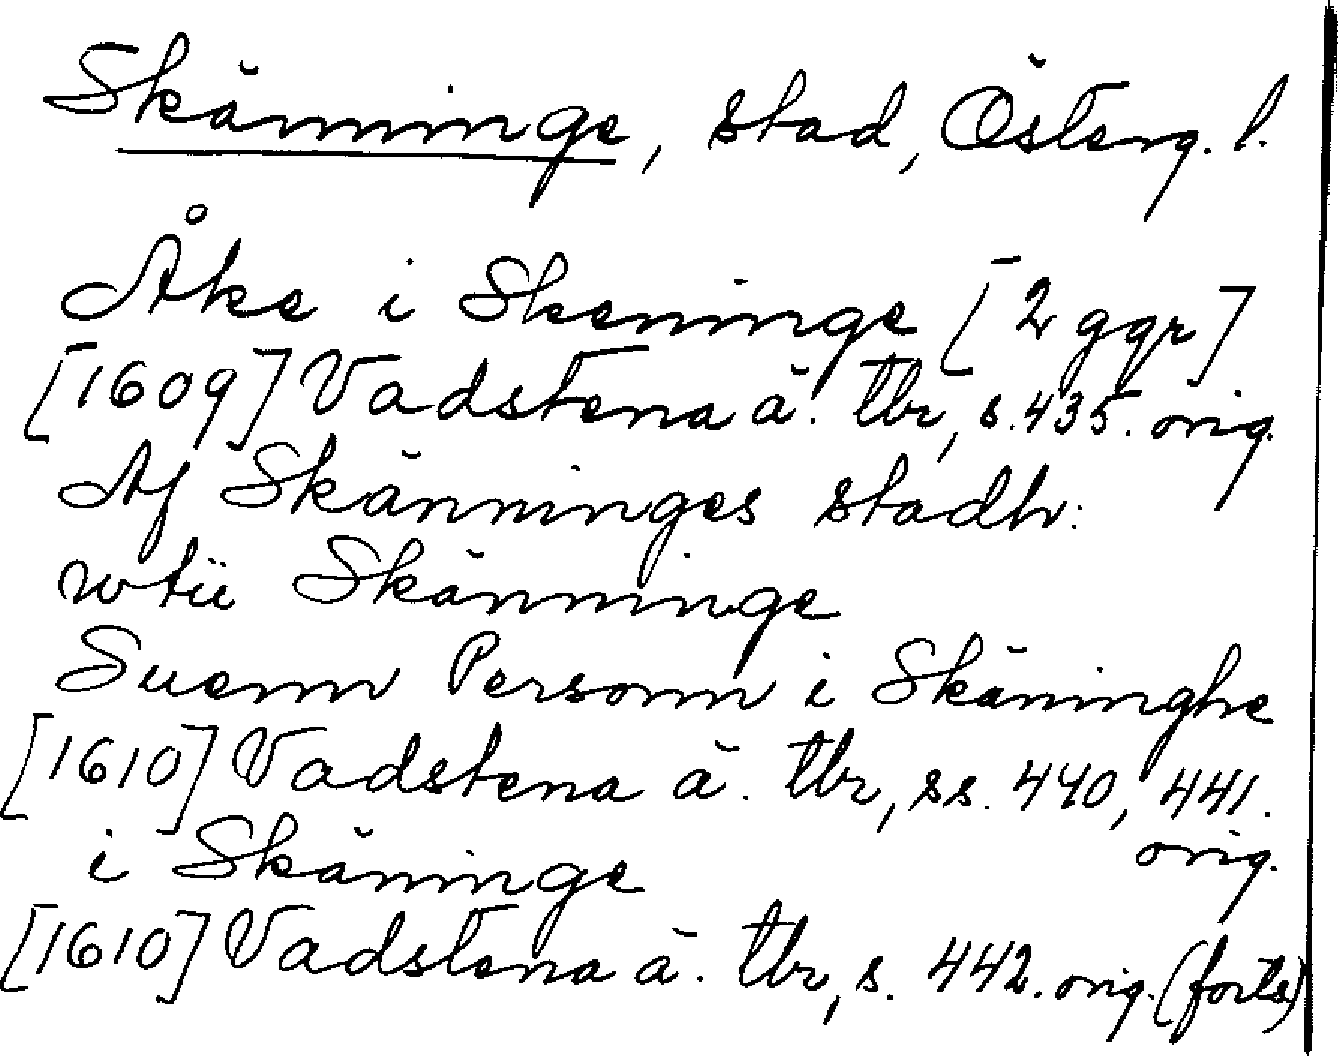 Skänninge, stad, Österg. l.
Åke i Skeninge [2 ggr]
[1609] Vadstena ä. tbr, s. 435. orig.
Af Skänninges stadh:
wtii Skänninge
Suenn Personn i Skäninghe
[1610] Vadstena ä. tbr, ss. 440, 441.
orig.
i Skäninge
[1610] Vadstena ä. tbr, s. 442. orig. (forts)